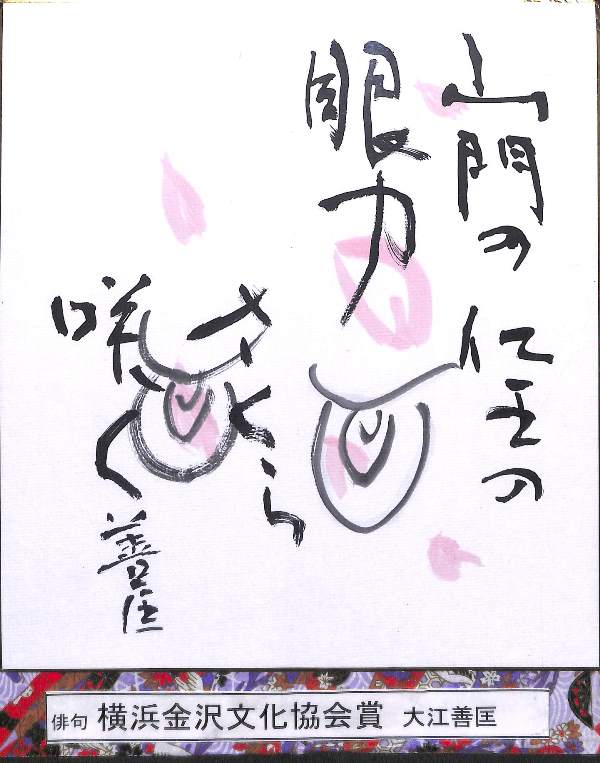 山門の仁王の
眼力
さくら
咲く
善匡
俳句 横浜金沢文化協会賞 大江善匡